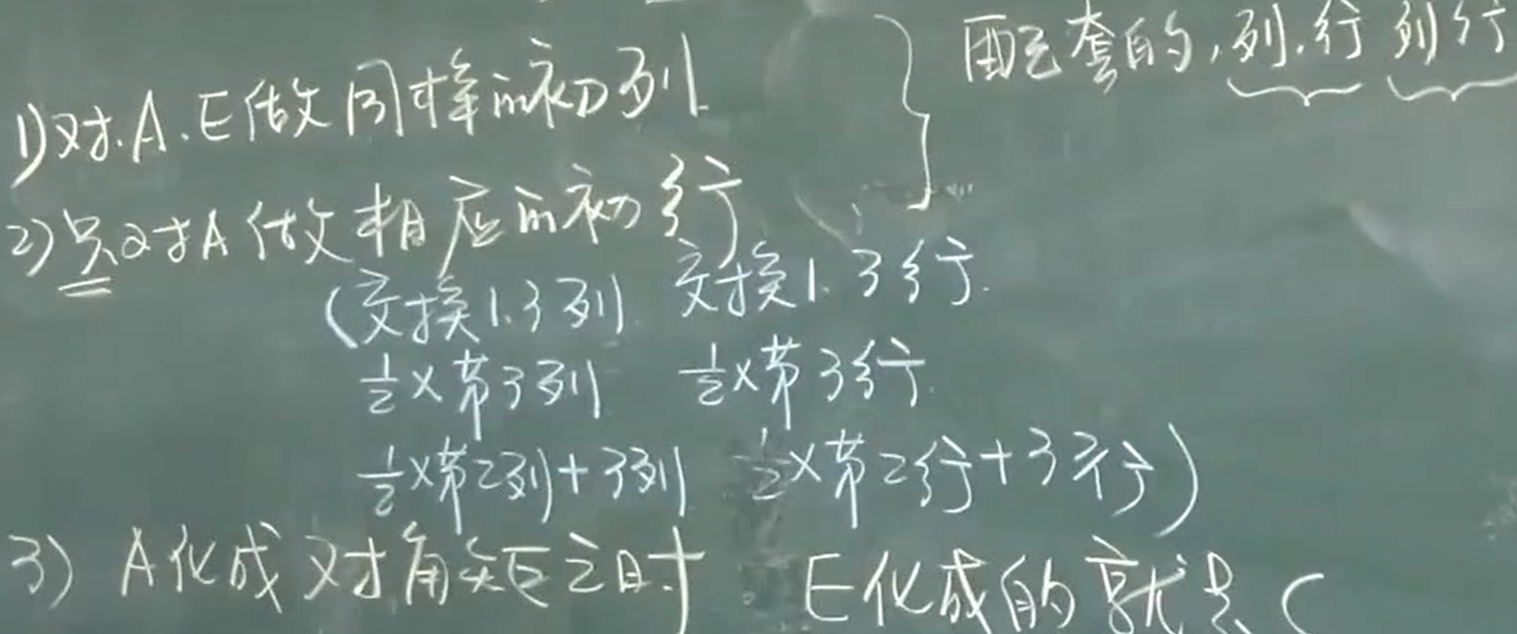 配套的,列.行 列行
1)对.A.E做同样的初列
2)只对A做相应的初行
(交换1.3列 交换1.3行.
½×第3列 ½×第3行.
½×第2列+3列 ½×第2行+3行)
3) A化成对角矩之时 E化成的就是C